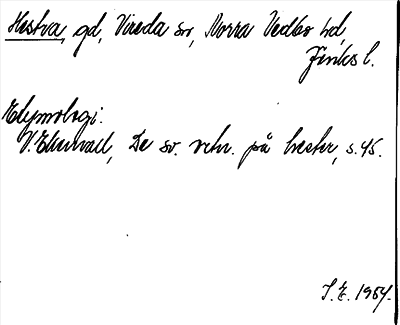 Hestva, gd, Vireda sn, Norra Vedbo hd,
Jönk. l.
Etymologi:
V. Ekenvall, De sv. ortn. på hester, s. 45.
S. E. 1954.